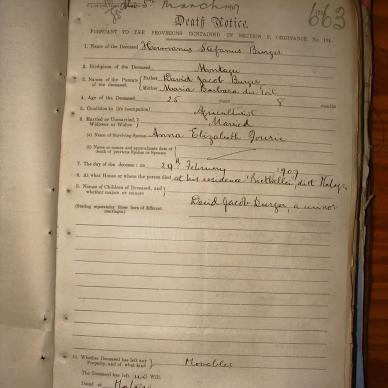 the 5th March 1909
663
Death Notice.
PURSUANT TO THE PROVISIONS CONTAINED IN SECTION 9, ORDINANCE No. 104.
1. Name of the Deceased Hermanus Stefanus Burger
2. Birthplace of the Deceased Montagu
3. Names of the Parents of the deceased. Father David Jacob Burger
Mother Maria Barbara du Toit
4. Age of the Deceased 25 years 8 months
5. Condition in life (occupation) Agriculturist
6. Married or Unmarried, Widower or Widow Married
(a) Name of Surviving Spouse Anna Elizabeth Fourie
(b) Name or names and approximate date of death of previous Spouse or Spouses
7. The day of the decease: on 24th February 1909
8. At what House or where the person died at his residence
9. Names of Children of Deceased, and whether majors or minors David Jacob Burger, a minor
(Stating separately those born of different marriages)
Whether Deceased has left any Property, and of what kind Movables
The Deceased has left no Will.
Dated at